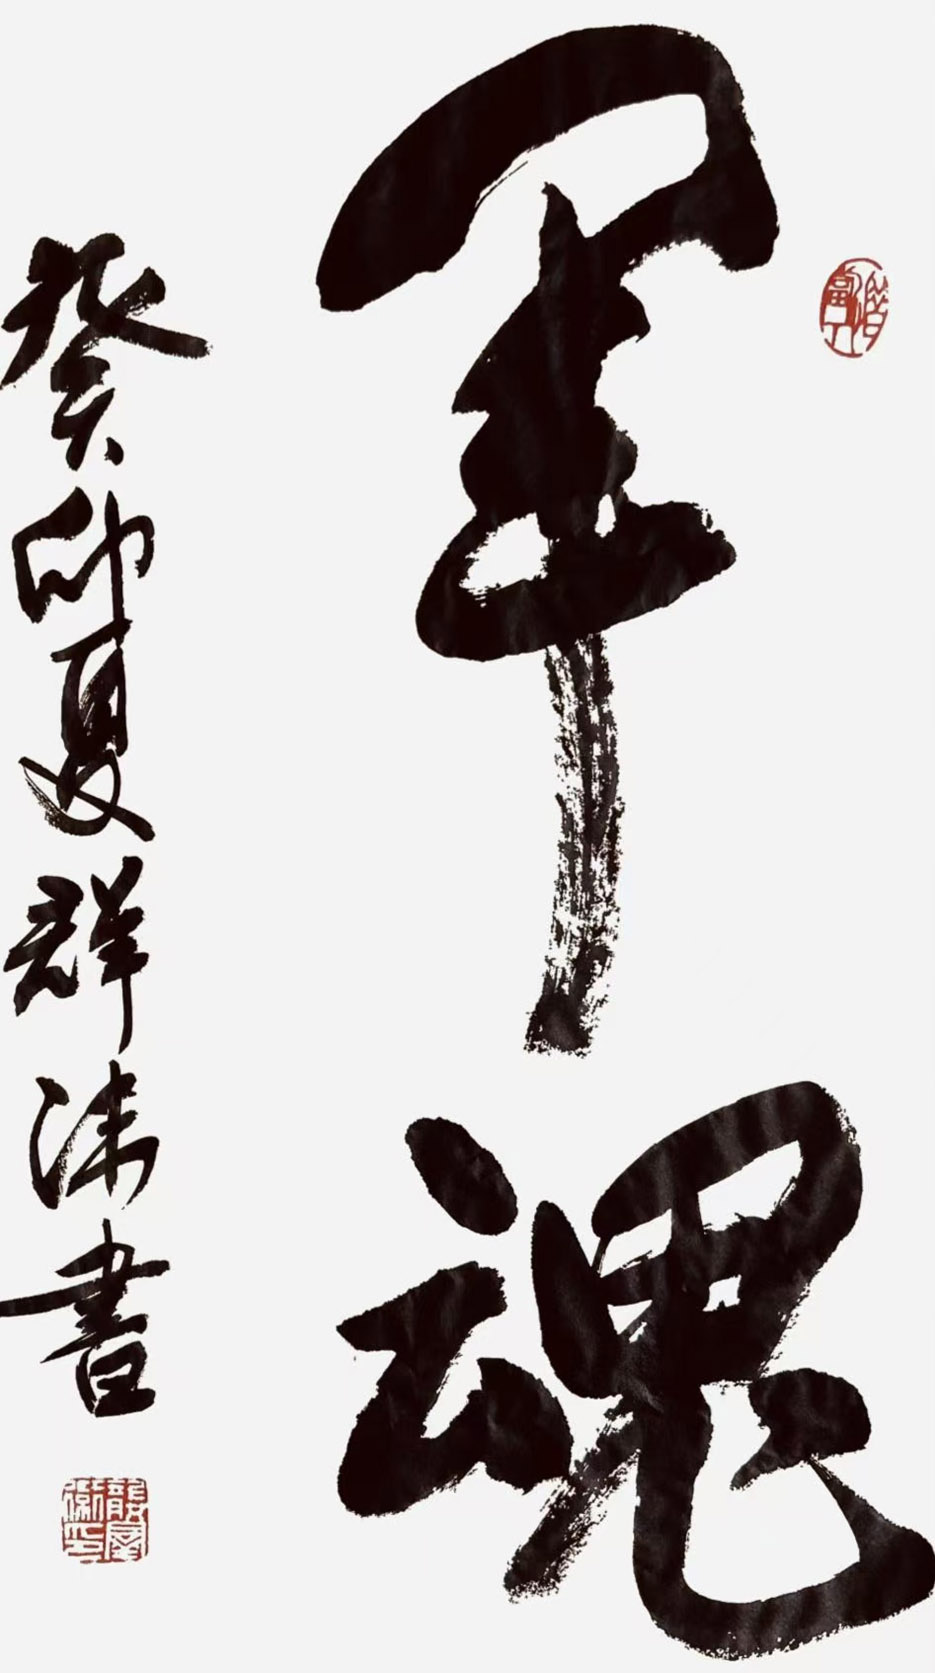 軍魂
癸卯夏群法書